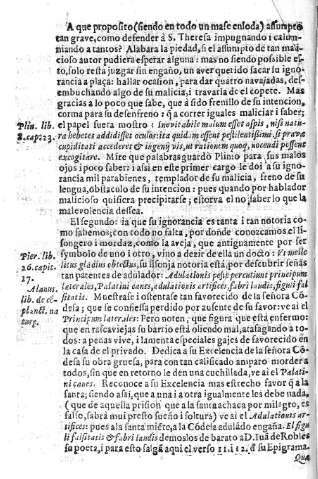 A que proposito (siendo en todo un mase ensoda) assumpto
tan grave, como defender à S. Theresa impugnando i calum-
niando a tantos? Alabara la piedad, si el assumpto de tan mali-
cioso autor pudiera esperar alguna: mas no siendo possible es-
to, solo resta juzgar sin engaño, un aver querido sacar su igno-
rancia a plaça: hallar ocasion, para dar quatro navajadas, des-
embuchando algo de su malicia, i travarla de el copete. Mas
gracias a lo poco que sabe, que à sido fremillo de su intencion,
corma para su desenfreno: q̃ a correr iguales malicia i saber;
el papel fuera nostro: Inevitabile malum esset aspis, nisi natu-
Plin. lib.
8. cap. 23.
ra hebetes addidisset oculos: ita quidem essent pestilentissimi, si pravæ
cupiditati accederet & ingenij vis, ut rationem quoq, nocendi possent
excogitare. Mire que palabras guardò Plinio para sus malos
ojos i poco saber: i assi en este primer cargo le doi a su igno-
rancia mil parabienes, templador de su malicia, freno de su
lengua, obstaculo de su intencion: pues quando por hablador
malicioso quisiera precipitarse; estorva el no saber lo que la
malevolencia dessea.
El segundo: ia que su ignorancia es tanta i tan notoria co-
mo sabemos; con todo no falta, por donde conozcamos el li-
songero i mordaz, como la aveja, que antiguamente por ser
symbolo de uno i otro, vino a dezir de ella un docto: Pr mellé
Pier. lib.
26. capit.
17.
litus gladius obrodius, su lisonja notoria està, por descubrir señas
tan patentes de adulador: Adulationis pestes percutiunt principum
laterales, Palatini canes, adulationis artifices fabri laudis, figuli fal-
Alanus.
lib. de cõ-
planct. na
turg.
sitatis. Muestrase i ostentase tan favorecido de la señora Cõ-
desa; que se confiessa perdido por ausente de su favor: ve ai el
Principum laterales: Pero noten, que figura que està enfermo:
que en rascaviejas su barrio està oliendo mal, atafagando a to-
dos: a penas vive, i lamenta especiales gajes de favorecido en
la casa de el privado. Dedica a su Excelencia de la señora Cõ-
desa su obra gruesa, para con tan calificado amparo morder a
todos, sin que en retorno le den una cuchillada, ve ai el Palati-
ni canes. Reconoce a su Excelencia mas estrecho favor q̃ a la
santa; siendo assi, que a una i a otra igualmente les debe nada,
(que de aquella prision que a la santa achaca por milagro, es
falso, sabrà mui presto sueño i soltura) ve ai el Adulationis ar-
tifices: pues a la santa miẽte, a la Condesa adulãdo engaña. El figu
li falsitatis & fabri laudis demoslos de barato a D. Iuã de Robles
su poeta, i para esto salga aqui el verso 11. i 12. d su Epigrama.
Que